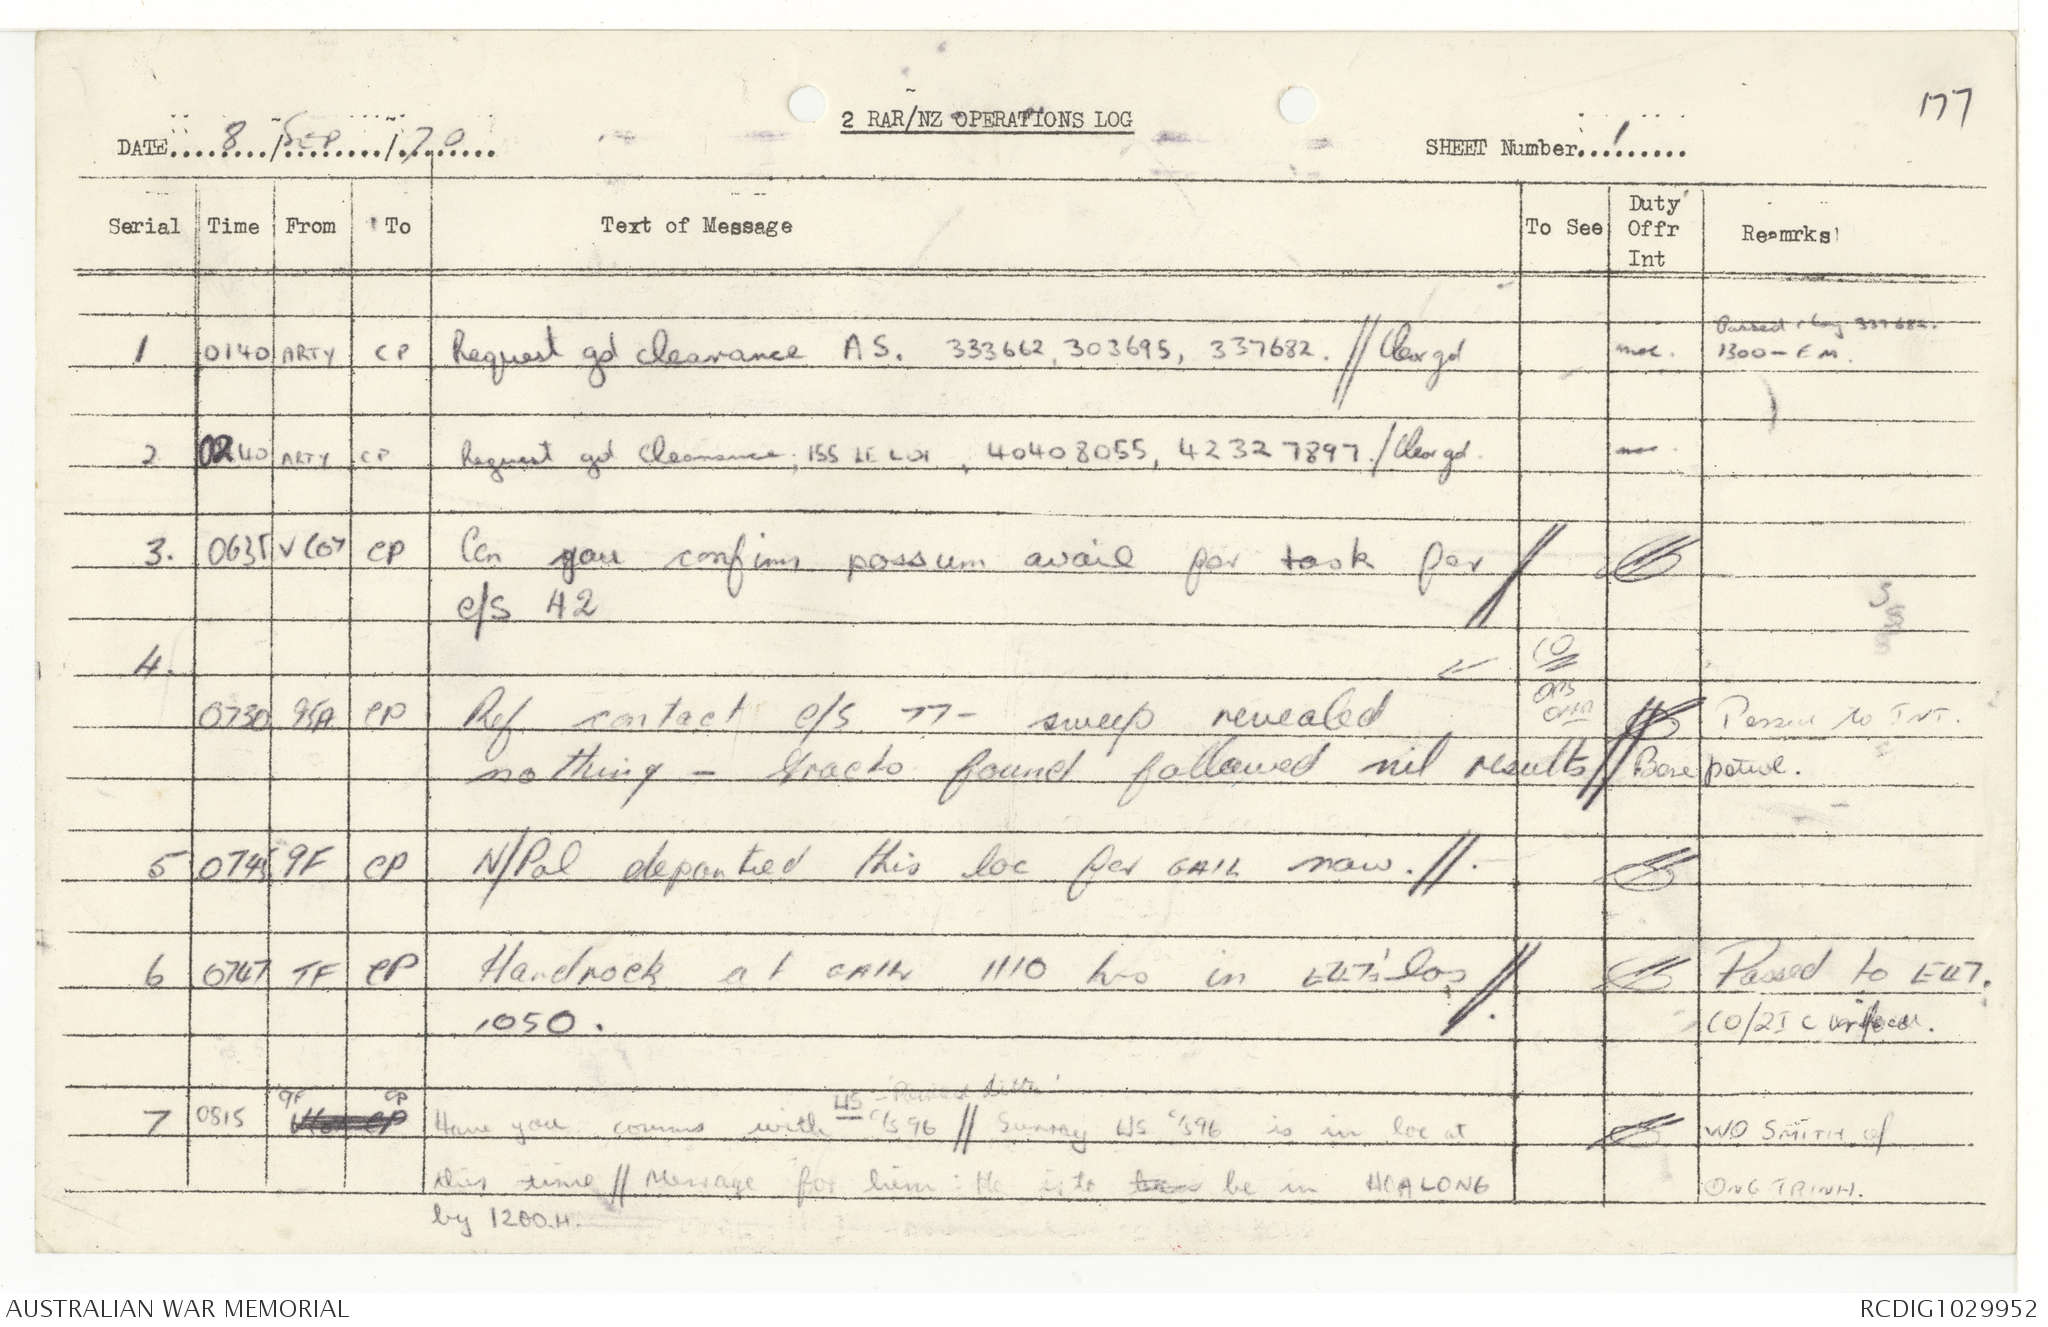 177
2 RAR/NZ OPERATIONS LOG
DATE....8.../SEP....../70......
SHEET Number...1......
Serial Time From To Text of Message To See Duty Offr Int Reamrks
Passed 337682.
1 0140 ARTY CP Request gd clearance AS. 333662, 303695, 337682. // Clear gd 1300 - EM.
2 0240 ARTY CP Request gd clearance, 155 , 40408055, 42327897. / Clear gd.
3. 0635 V Coy CP Can you confirm possum avail for task for
c/s 42
4. CO
OPS
OFFR
0730 95A CP Ref contact c/s 77 - sweep revealed Passed to INT.
nothing - tracks found followed nil results // Base patrol.
5 0745 9F CP N/Pal departed this loc for GAIL now. //.
6 0747 TF CP Hardrock at GAIL 1110 hrs in loc // Passed to
1050. CO/2IC
9F CP
7 0815 Have you comms with WS c/s 96 // Sunray WS c/s 96 is in loc at WO SMITH of
this time // Message for him: He is to be in HOA LONG ONG TRINH.
by 1200H.
AUSTRALIAN WAR MEMORIAL
RCDIG1029952